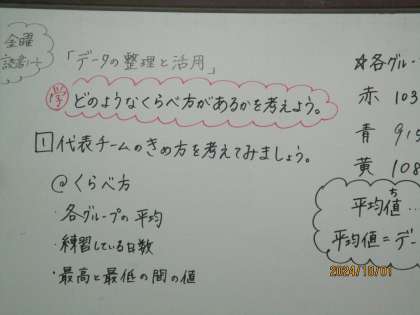 金曜
読書ノート
「データの整理と活用」
☆各グルー
どのようなくらべ方があるかを考えよう。
赤 103
1 代表チームのきめ方を考えてみましょう。
青 915
黄 108
@くらべ方
・各グループの平均
・練習している日数
・最高と最低の間の値
平均値…
ち
平均値=デー
2024/10/01